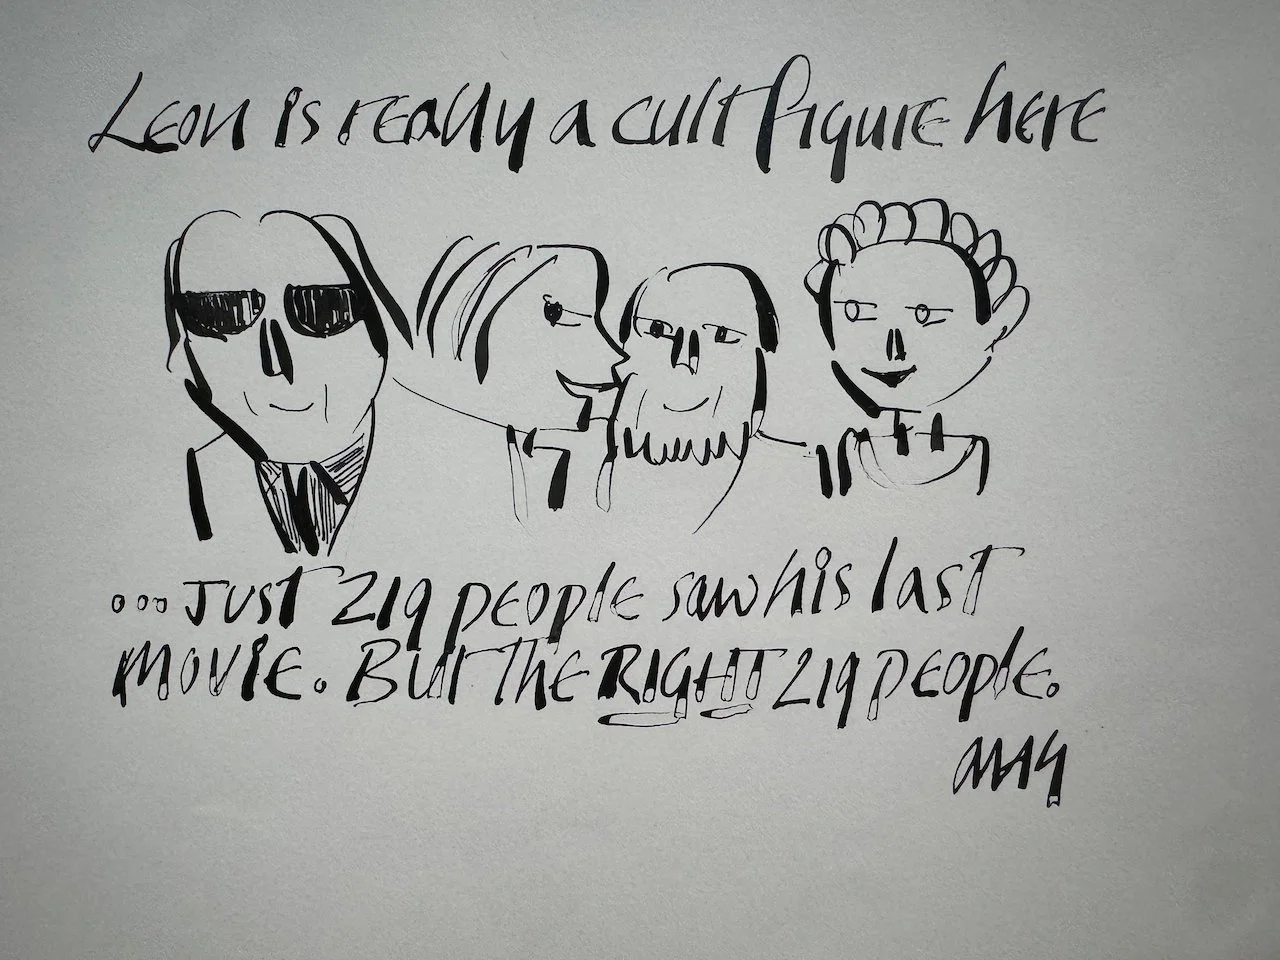 Leon is really a cult figure here
...Just 219 people saw his last
movie. But the RIGHT 219 people.